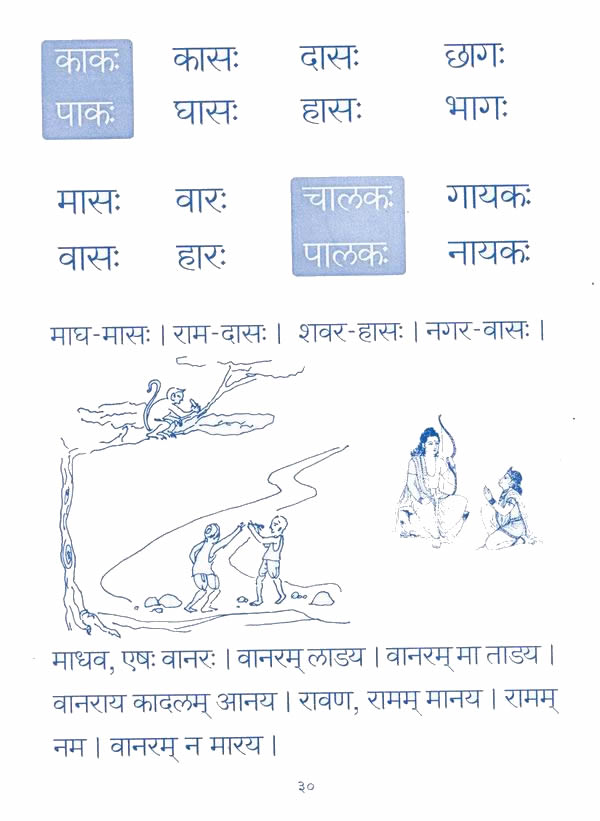 काकः कासः दासः छागः
पाकः घासः हासः भागः
मासः वारः चालकः गायकः
वासः हारः पालकः नायकः
माघ-मासः । राम-दासः । शवर-हासः । नगर-वासः ।
माधव, एषः वानरः । वानरम् लाडय । वानरम् मा ताडय ।
वानराय कादलम् आनय । रावण, रामम् मानय । रामम्
नम । वानरम् न मारय ।
३०